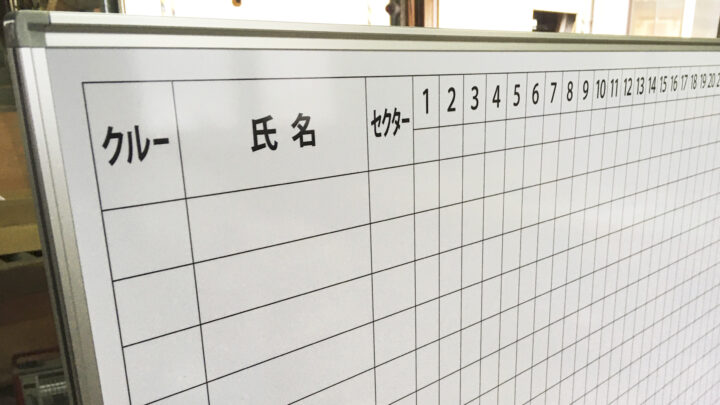 クルー 氏名 セクター 1 2 3 4 5 6 7 8 9 10 11 12 13 14 15 16 17 18 19 20